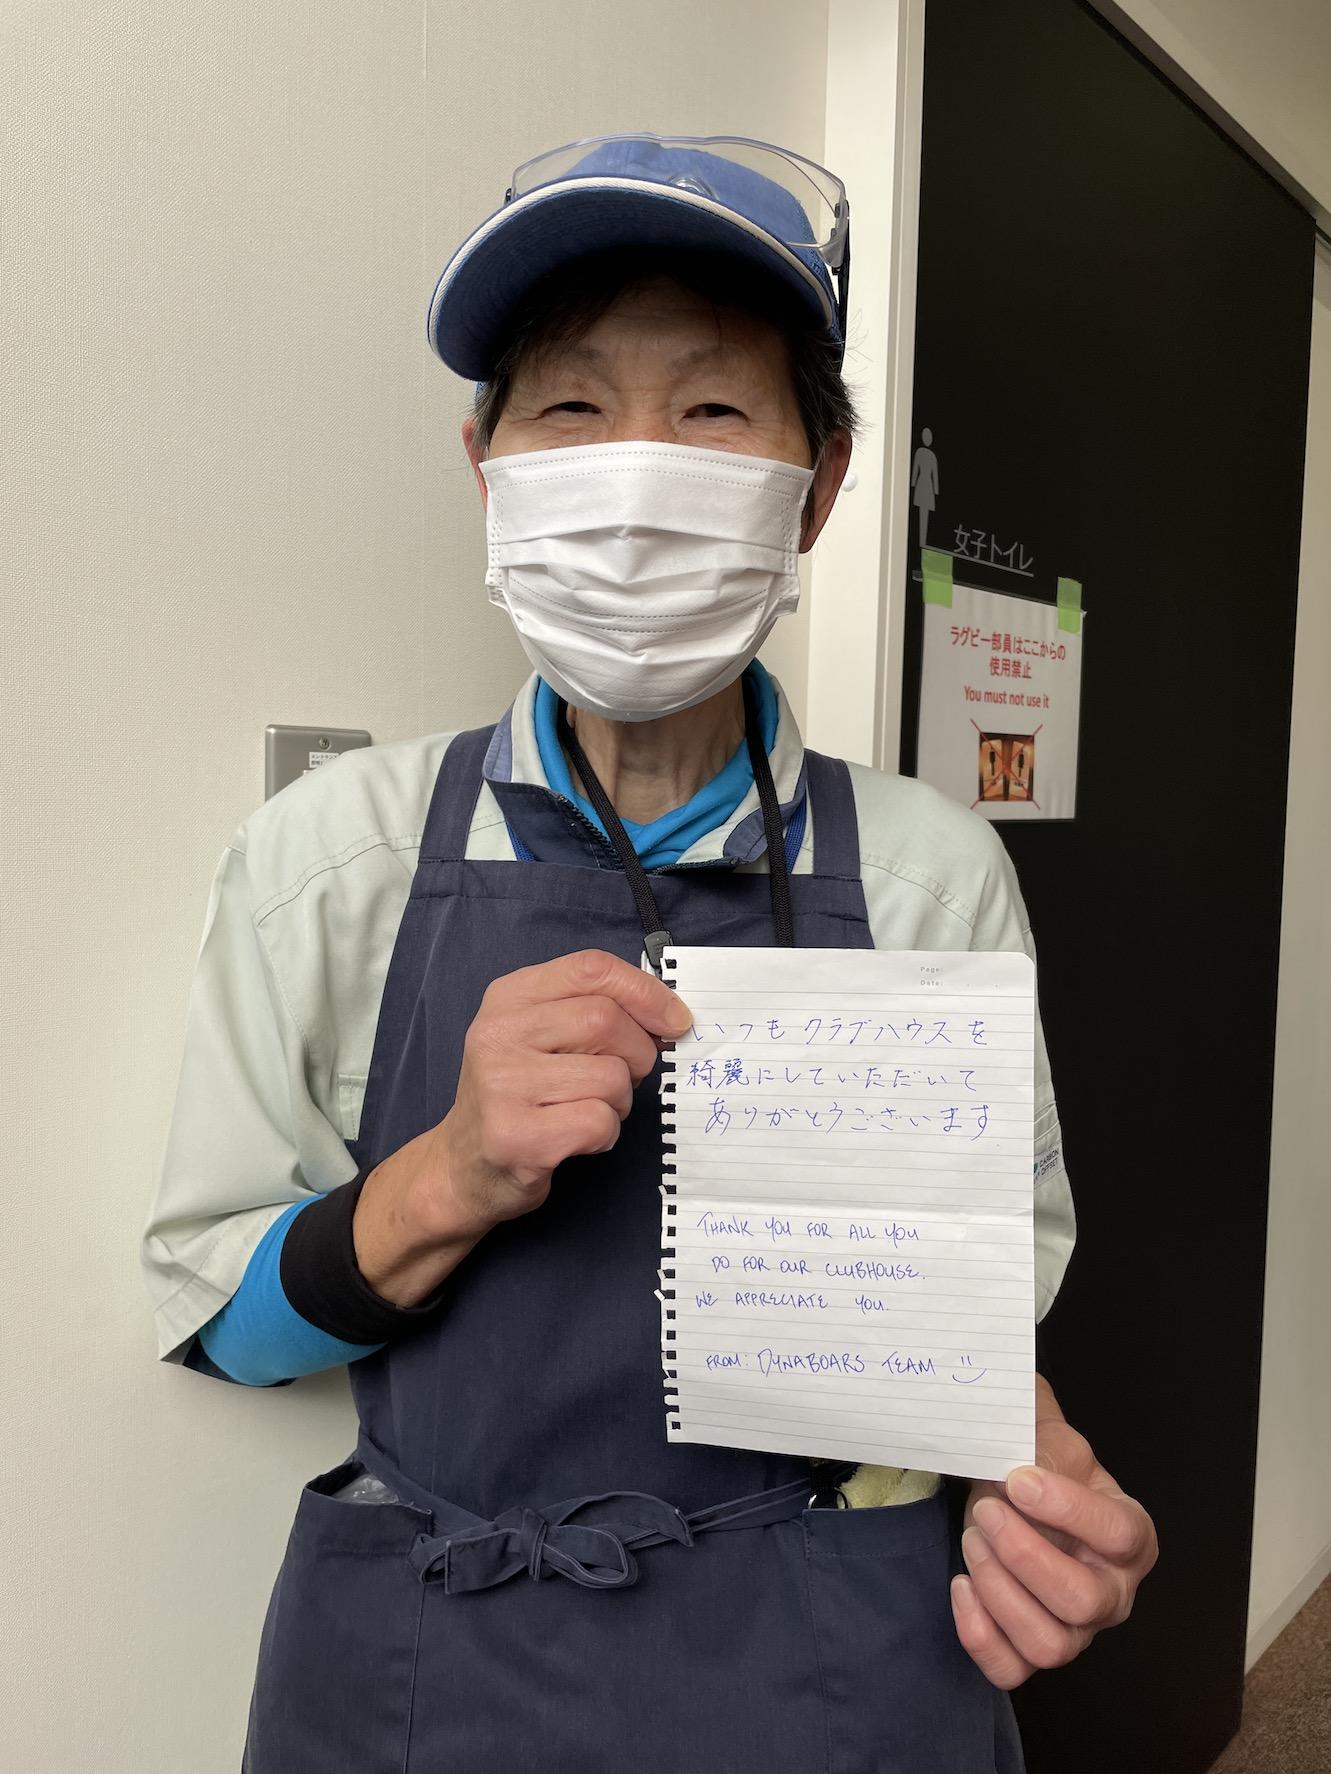 女子トイレ
ラグビー部員はここからの
使用禁止
You must not use it
Page:
Date:
いつもクラブハウスを
綺麗にしていただいて
ありがとうございます
THANK YOU FOR ALL YOU
DO FOR OUR CLUBHOUSE.
WE APPRECIATE YOU.
FROM: DYNABOARS TEAM
CARBON
OFFSET